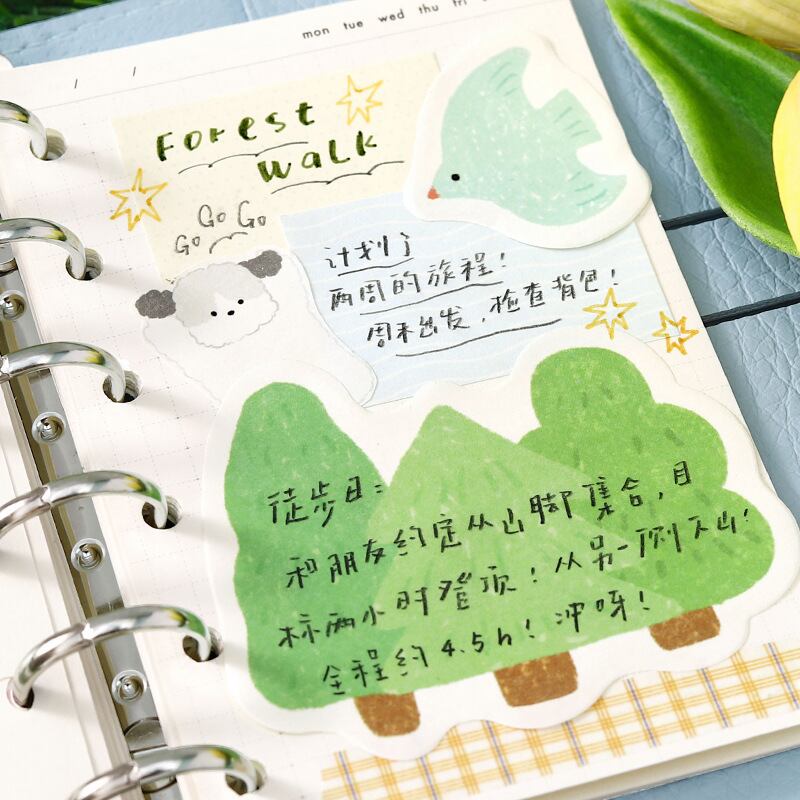 mon tue wed thu fri
/ /
Forest
Walk
Go Go
Go
计划了
两周的旅程！
周末出发，检查背包！
徒步日：
和朋友约定从山脚集合，目
标两小时登顶！从另一侧下山！
全程约4.5h！冲呀！